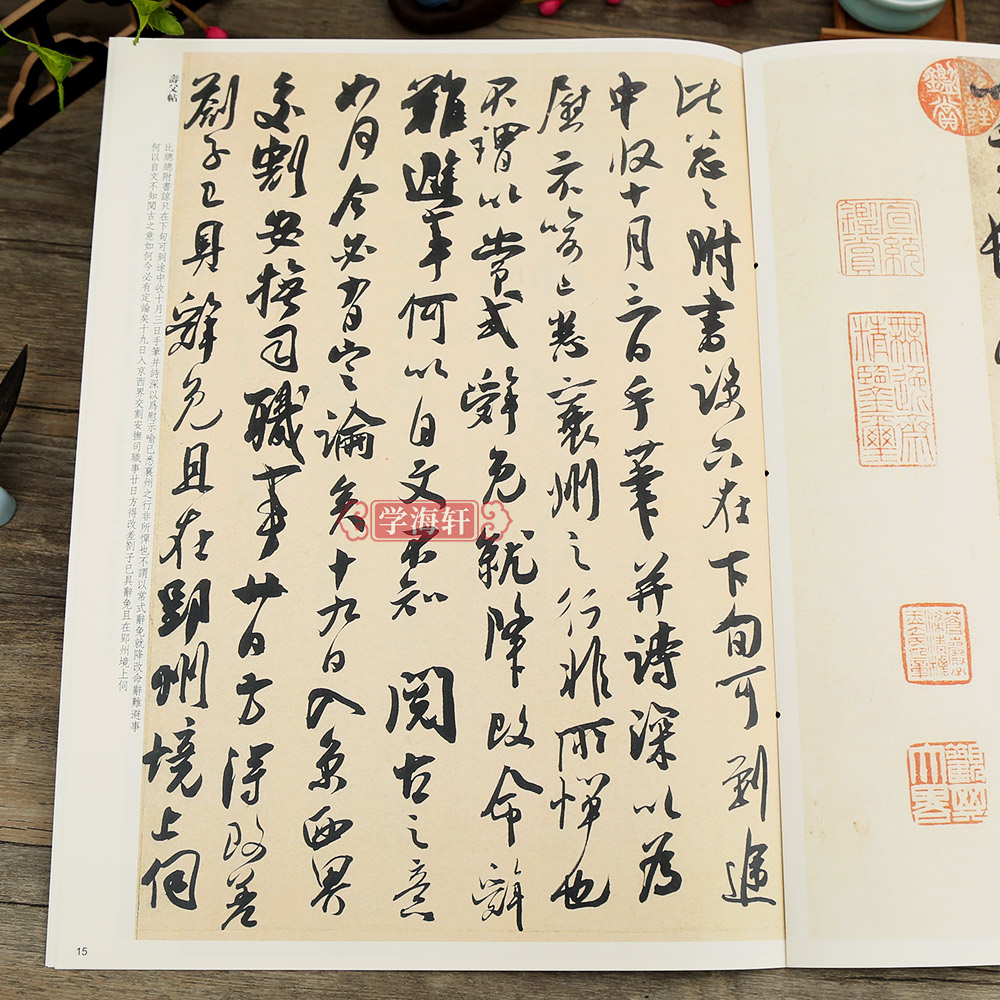 乾隆鑑賞
宣統鑑賞
無逸齋精鑒璽
觀其大略
比总〻附書諒只在下旬可到途
中收十月三日手筆并詩深以為
慰示喻已悉襄州之行非所憚也
不謂以常式辭免就降改命辭
難避事何以自文不知 閱古之意
如何今必有定論矣十九日入京西界
交割安撫司職事廿日方得改差
劄子已具辭免且在郢州境上伺
学海轩
壽父帖
比總總附書諒只在下旬可到途中收十月三日手筆并詩深以爲慰示喻已悉襄州之行非所憚也不謂以常式辭免就降改命辭難避事
何以自文不知閱古之意如何今必有定論矣十九日入京西界交割安撫司職事廿日方得改差劄子已具辭免且在郢州境上伺
15